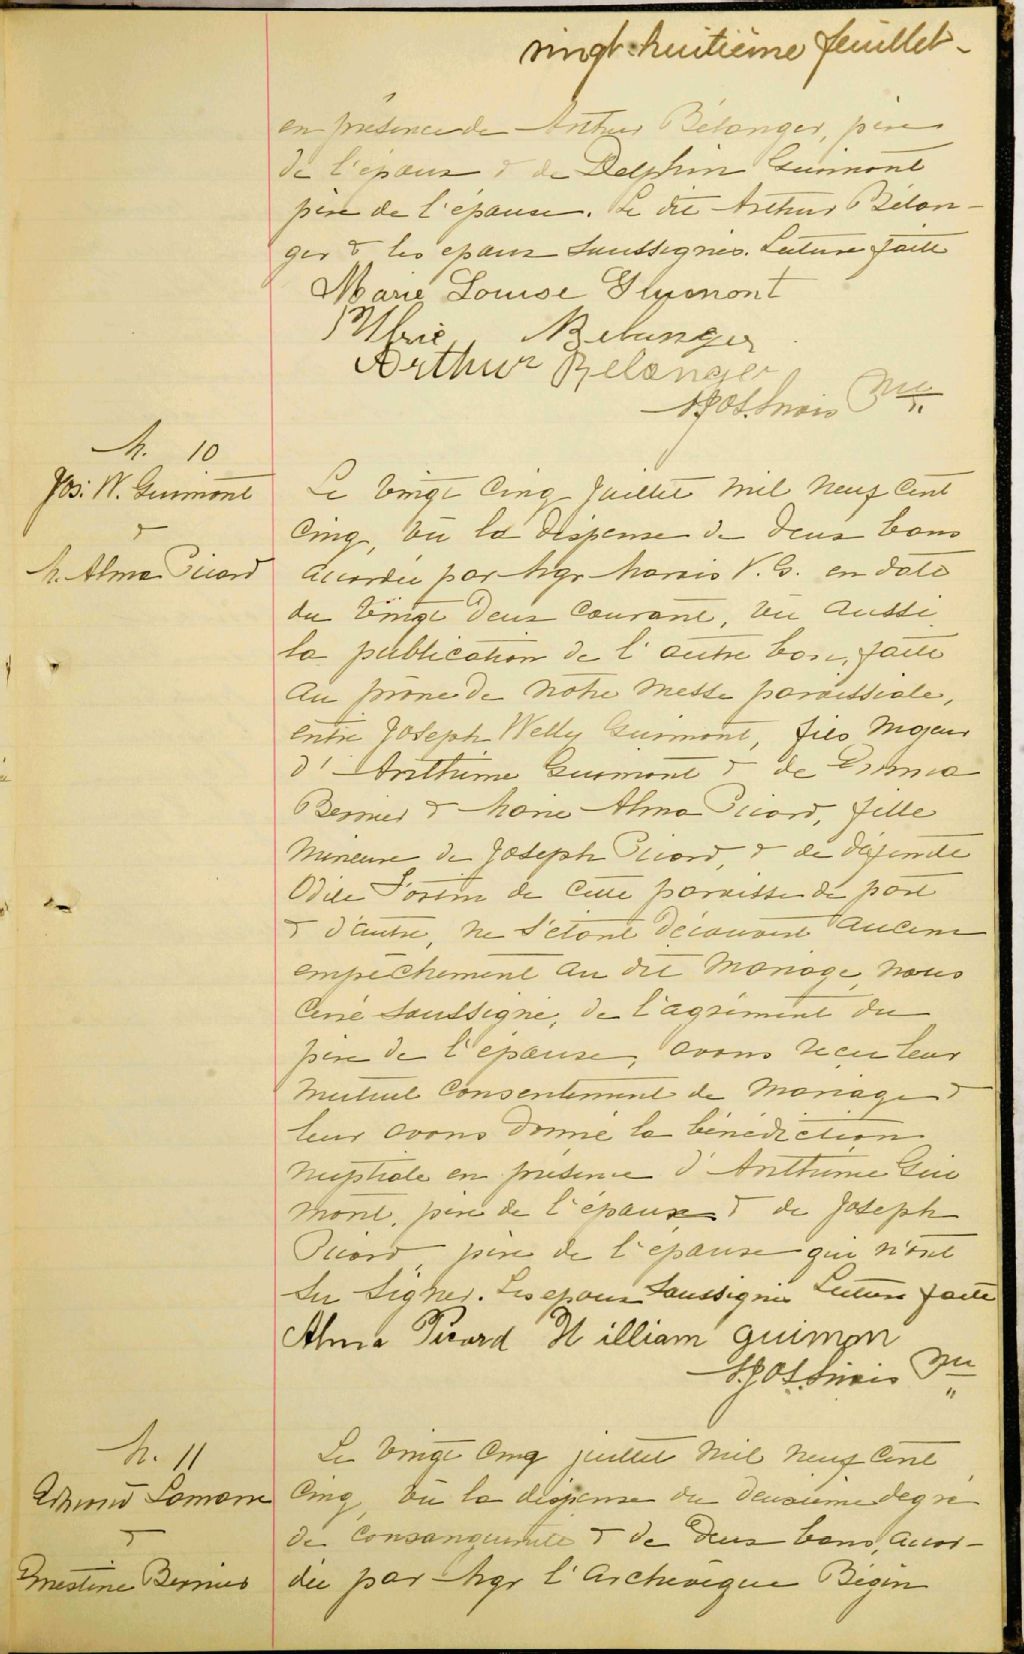 vingt-huitième feuillet -
en présence de Arthur Bélanger, père
de l'époux & de Delphin Guimont
père de l'épouse. Le dit Arthur Bélan-
ger & les epoux soussignés. Lecture faite
Marie Louise Guimont
Belanger
Arthur Belanger
Ptre
M. 10
Jos: W. Guimont
&
M. Alma Picard
Le vingt cinq juillet mil neuf cent
cinq, vu la dispense de deux bans
accordée par Mgr Marois V.G. en date
du vingt deux courant, vu aussi
la publication de l'autre ban, faite
au prône de notre messe paroissiale,
entre Joseph Welly Guimont, fils majeur
d'Anthime Guimont & de Emma
Bernier & Marie Alma Picard, fille
mineure de Joseph Picard, & de défunte
Odile Fortin de cette paroisse de part
& d'autre, ne s'étant découvert aucun
empêchement au dit mariage, nous
curé soussigné, de l'agrément du
père de l'épouse, avons reçu leur
mutuel consentement de mariage &
leur avons donné la bénédiction
nuptiale en présence d'Anthime Gui
mont, père de l'époux & de Joseph
Picard, père de l'épouse qui n'ont
su signer. Les epoux soussignés Lecture faite
Alma Picard William guimon
Ptre
M. 11
Edmond Lamarre
&
Ernestine Bernier
Le vingt cinq juillet mil neuf cent
cinq, vu la dispense du deuxième degré
de consanguinité & de deux bans, accor-
dée par Mgr l'Archevêque Bégin